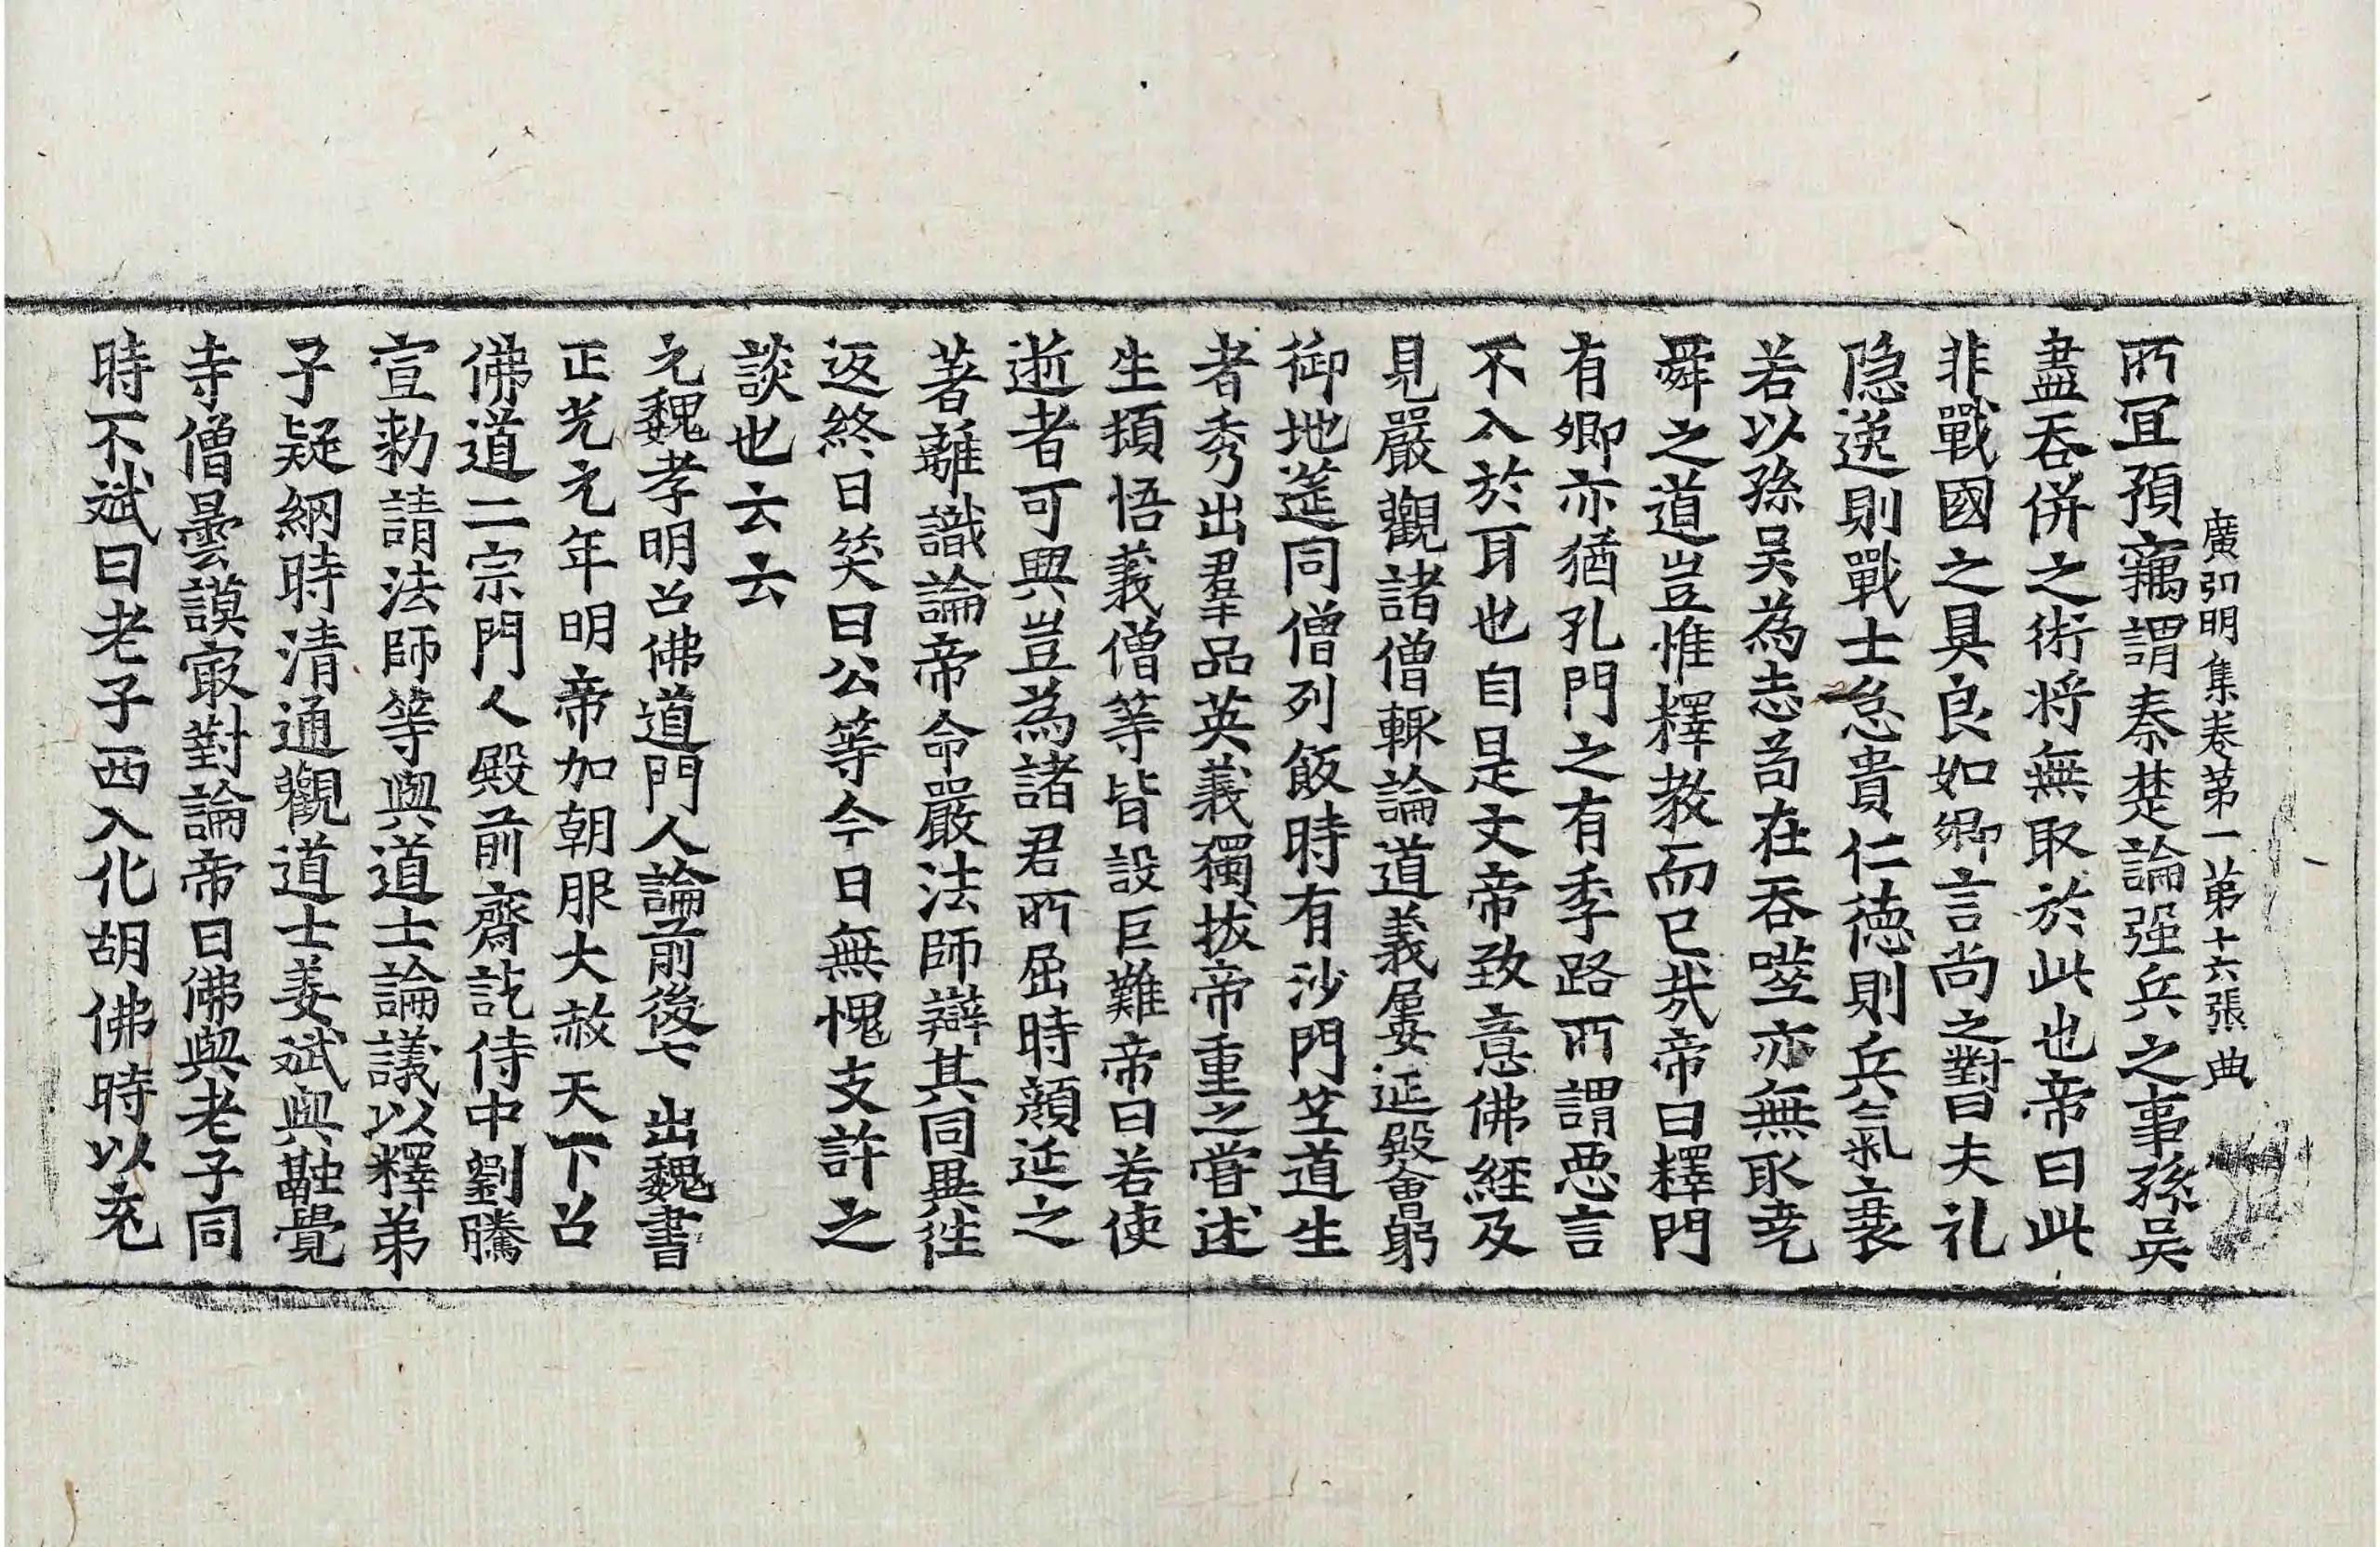 廣弘明集卷第一第十六張典
所冝預竊謂秦楚論强兵之事孫吳
盡吞併之術將無取於此也帝曰此
非戰國之具良如卿言尚之對曰夫礼
隐逸則戰士怠貴仁德則兵氣衰
若以孫吳為志茍在吞噬亦無取尭
舜之道豈惟釋教而已㢤帝曰釋門
有卿亦猶孔門之有季路所謂惡言
不入於耳也自是文帝致意佛經及
見嚴觀諸僧輙論道義屢延殿會躬
御地筵同僧列飯時有沙門竺道生
者秀出羣品英義獨拔帝重之甞述
生頓悟義僧等皆設巨難帝曰若使
逝者可興豈為諸君所屈時顔延之
著離識論帝命嚴法師辯其同異往
返終日笑曰公等今日無愧支許之
談也云云
元魏孝明召佛道門人論前後七　出魏書
正光元年明帝加朝服大赦天下召
佛道二宗門人殿前齋訖侍中劉騰
宣勑請法師等與道士論議以釋弟
子疑網時清通觀道士姜斌與融覺
寺僧曇謨㝡對論帝曰佛與老子同
時不斌曰老子西入化胡佛時以充